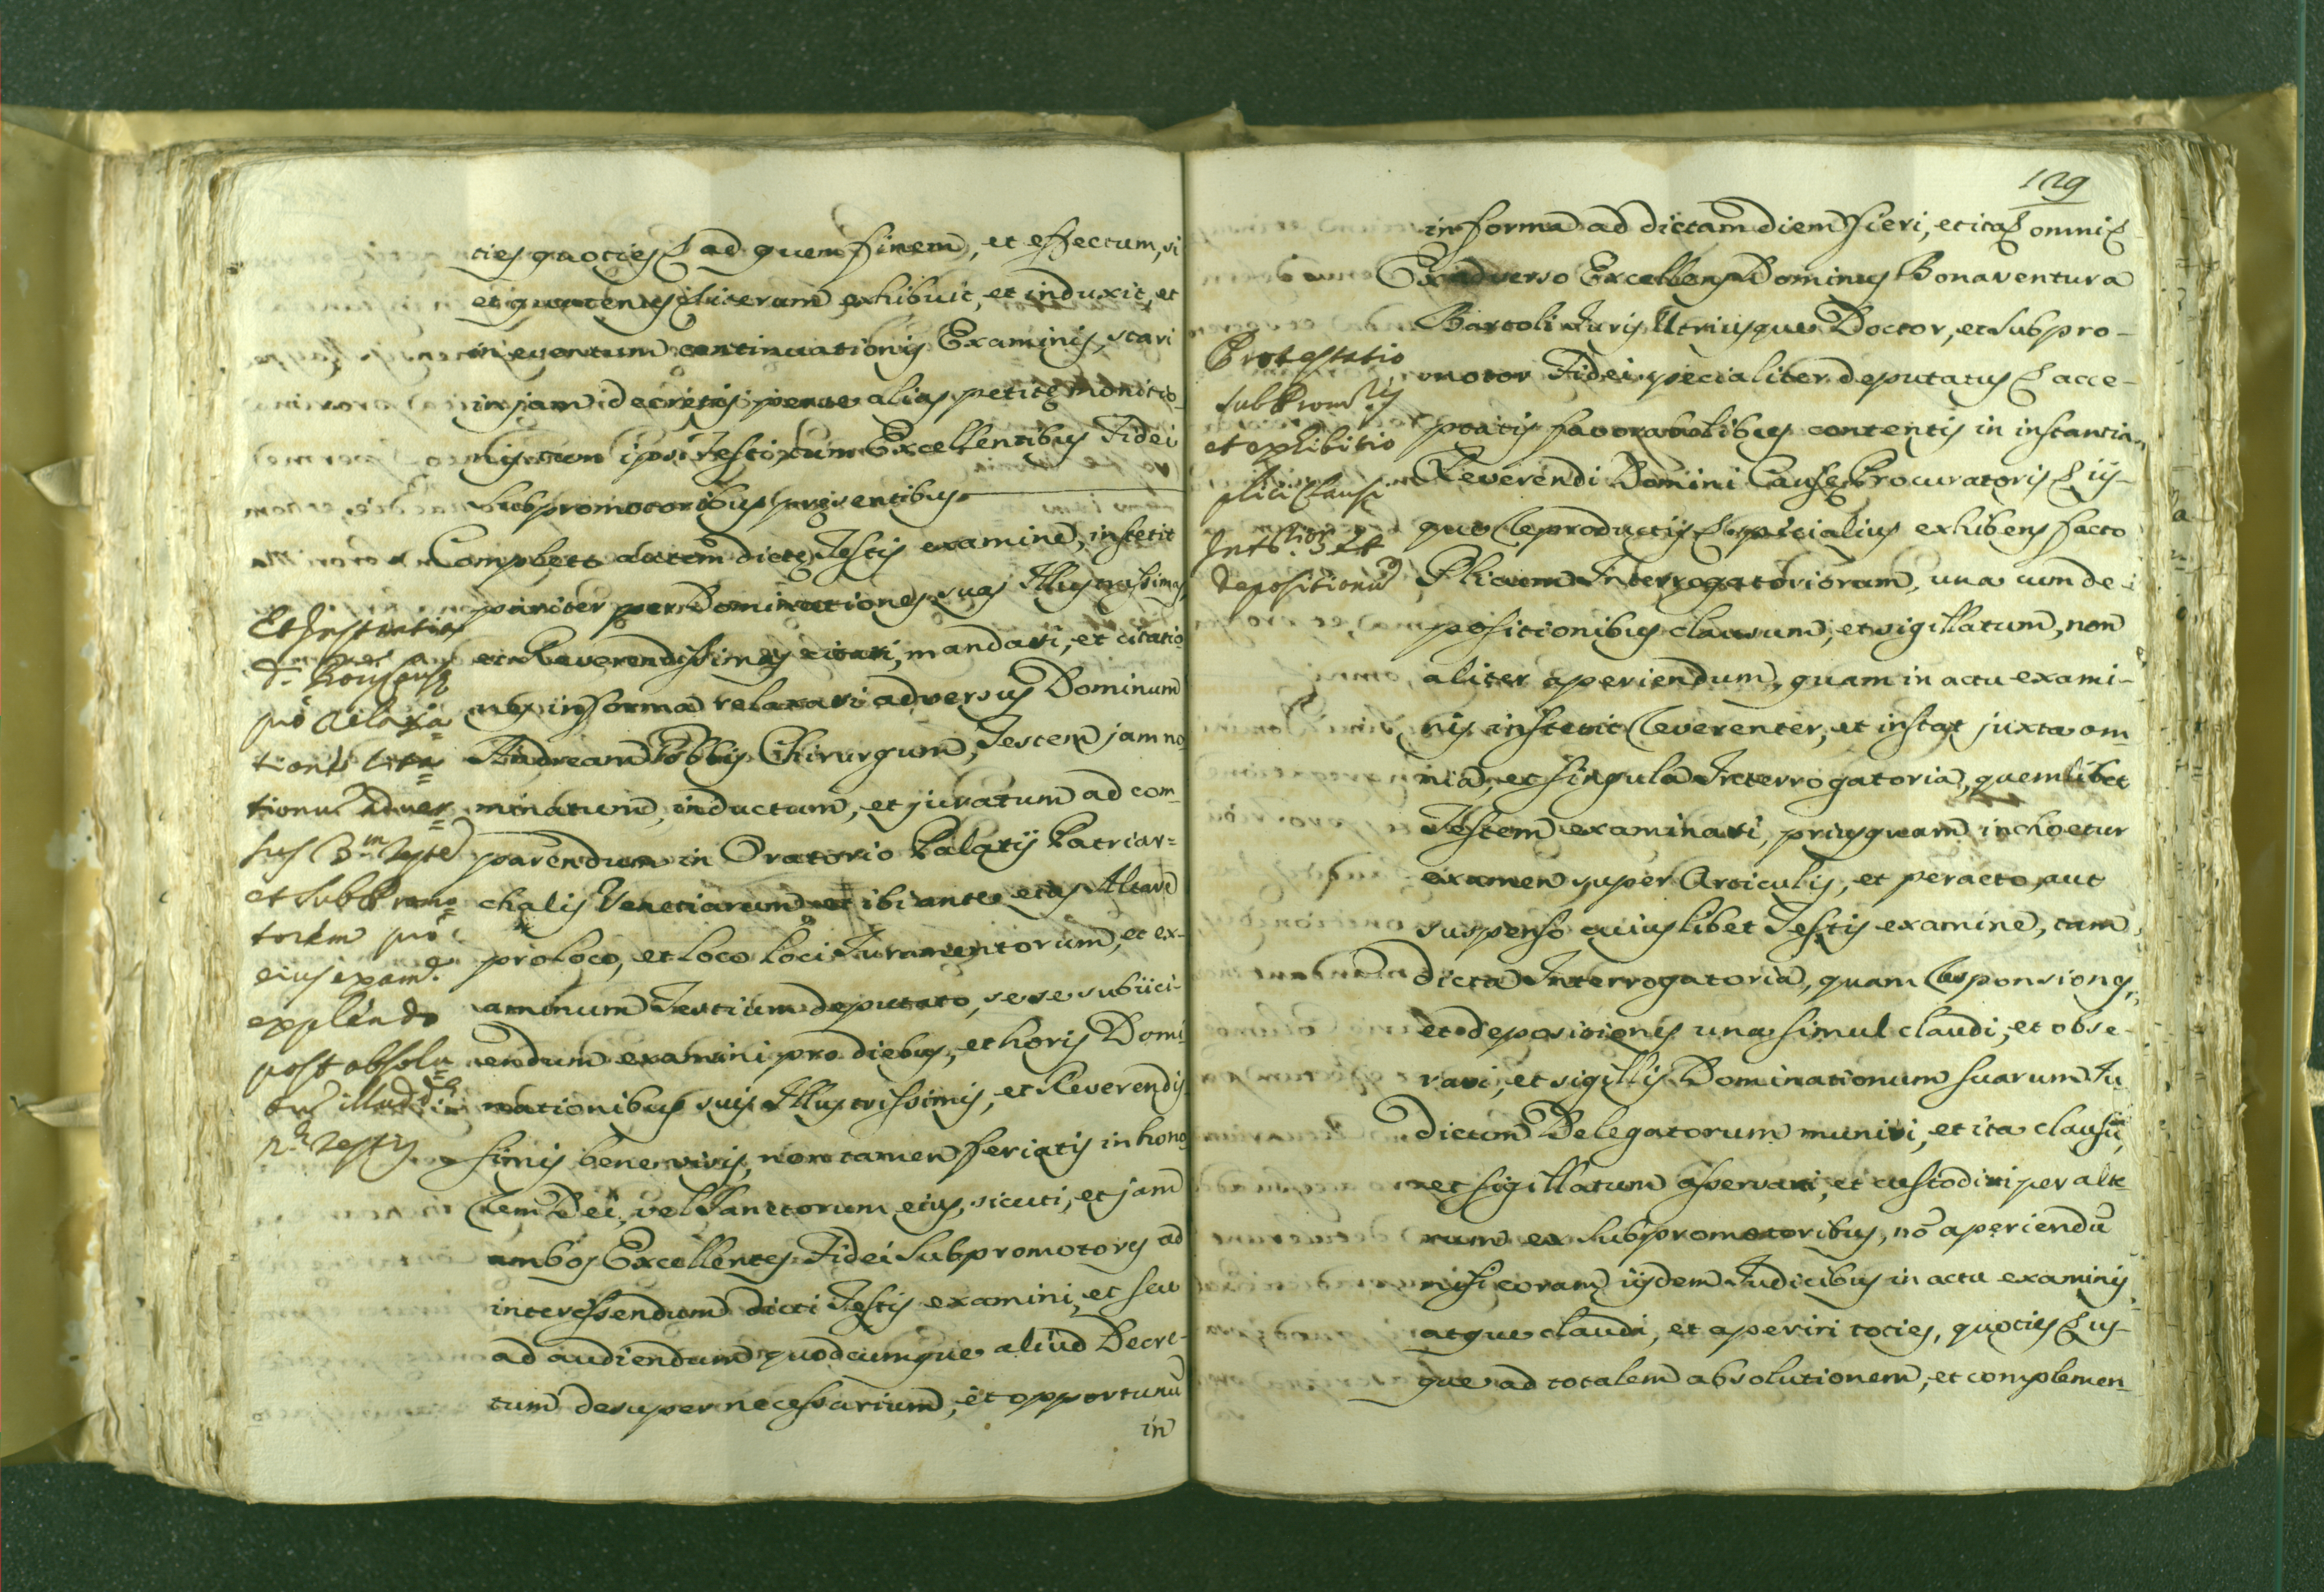 ties quoties & ad quem finem, et effectum, si
et quatenus literam exhibuit, et induxit, et
in eventum continuationis Examinis, stari
in jam decretis pene alias petite monitio-
nis cum ipso Teste, cum Excellentibus Fidei
Subpromotoribus presentibus
Completo autem dicte Testis examine, institit
pariter per Dominationes suas Illustrissimas,
et Reverendissimas citari, mandari, et citatio-
nes in forma relaxari adversus Dominum
Andream Chirurgum, Testem jam no
minatum, inductum, et juratum ad com-
parendum in Oratorio Palatij Patriar=
chalis Venetiarum et ibi ante ejus Altare
pro loco, et loco loci Juramentorum, et ex-
aminum Testium deputato, sese subiici-
endum examini pro diebus, et horis Domi
nationibus suis Illustrissimis, et Reverendis
simis bene visis, non tamen feriatis in hono
rem Dei, vel Sanctorum eius, sicuti, et jam
ambos Excellentes Fidei Subpromotores ad
interessendum dicti Testis examini, et seu
ad audiendum quodcumque aliud Decre-
tum desuper necessarium, et opportunũ
in
Et Instantia
pro relaxa
tione cita
tionũ adver
sus 3.m Teste
et Subpromo
torem pro
eius exam.e
explendo
post absolu
Testis
129
in forma ad dictam diem fieri, et ita & omni &
Ex adverso Excellens Dominus Bonaventura
Bartoli Juris Utriusque Doctor, et Subpro-
motor Fidei specialiter deputatus & acce-
ptatis favorabilibus contentis in instantia
Reverendi Domini Cause Procuratoris & iis-
que reproductis & specialius exhibens facto
Plicum Interrogatoriorum, una cum de-
positionibus clausum, et sigillatum, non
aliter aperiendum, quam in actu exami-
nis institit reverenter, et instat juxta om-
nia, et singula Interrogatoria, quemlibet
Testem examinari, priusquam inchoetur
examen super Articulis, et peracto, aut
suspenso cuiuslibet Testis examine, tam
dicta Interrogatoria, quam responsiones,
et depositiones una simul claudi, et obse-
rari, et sigillis Dominationum suarum Ju
dicum Delegatorum muniri, et ita clausũ,
et sigillatum asservari, et custodiri per alte
rum ex Subpromotoribus, nõ aperiendũ
nisi coram iisdem Judicibus in actu examinis,
atque claudi, et aperiri toties, quoties & us-
que ad totalem absolutionem, et complemen-
Protestatio
Subprom.ris
et exhibitio
plici clausi
Int.rior. et
depositionũ